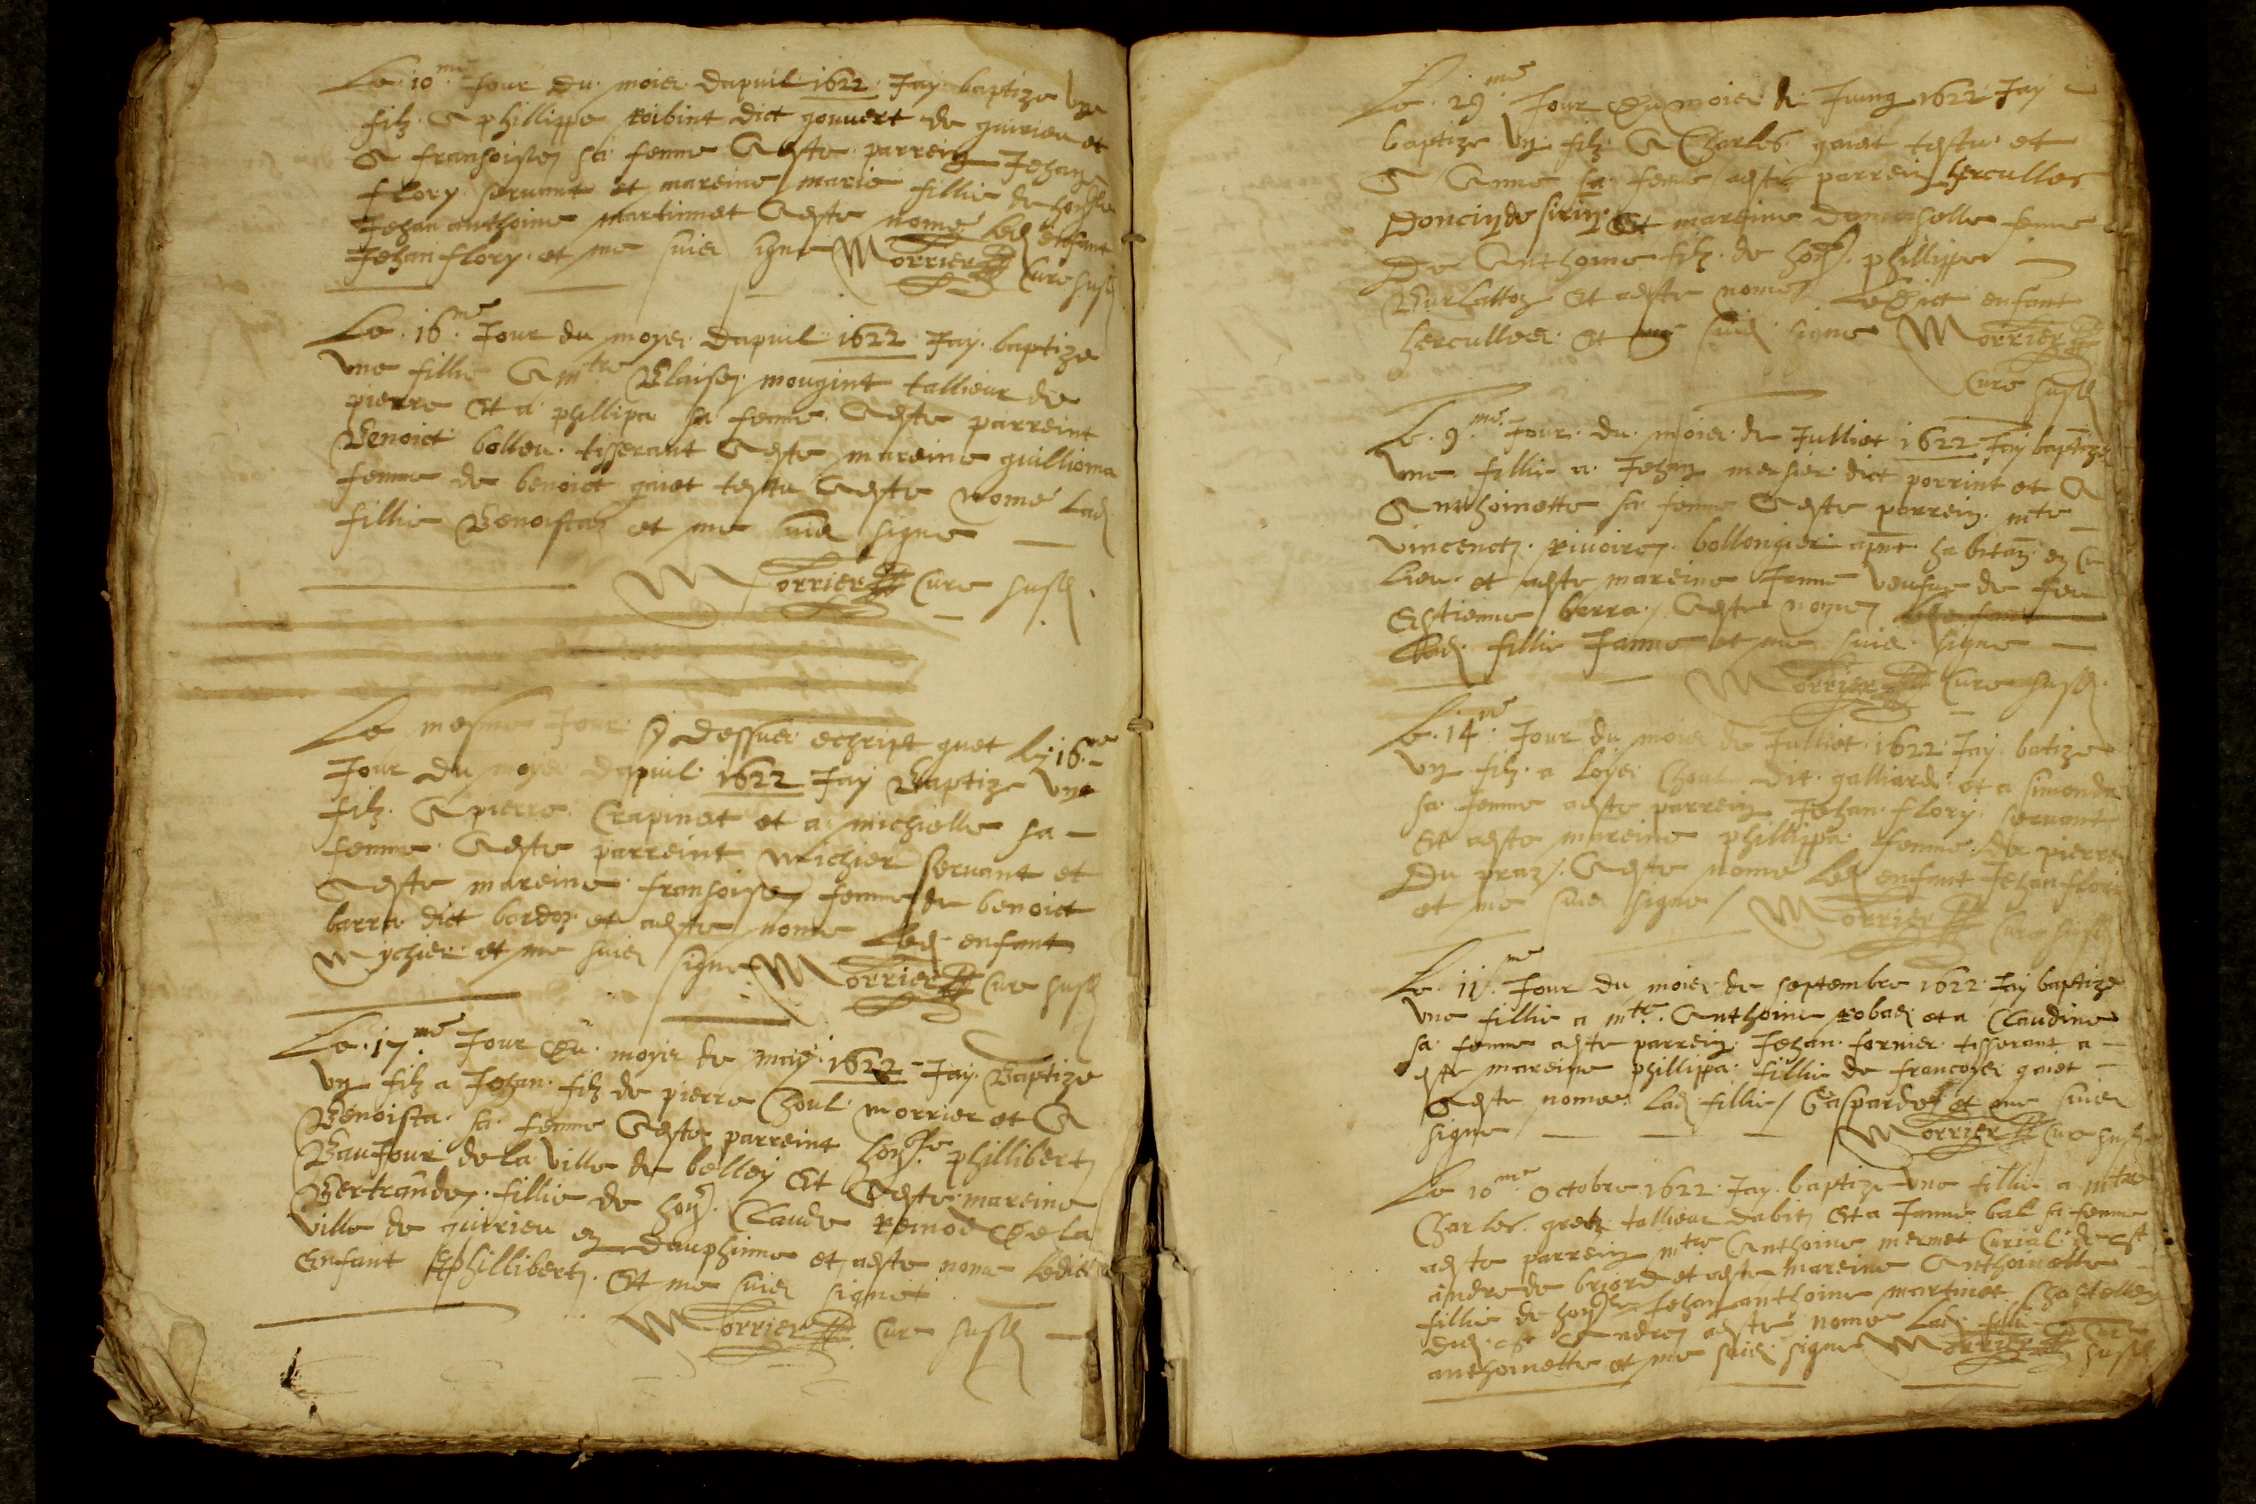 Le 10.me Jour du mois dapvril 1622 Jay baptize ung
filz A phillippe robint dict gouvert de quirieu et
A fransoisen sa femme A este parrein Jehan
flory servant et mareine marie fillie de honble
Jehan anthoine martinnet A este nome led enfant
Jehan flory et me suis signe Morrier Cure susd
Le .16.me Jour du moys dapvril 1622 Jay baptize
une fillie A mtre Blaisen mougint tallieur de
pierre Et a phillipa sa femme A este parreint
Benoict bolleu tisserant A este mareine guillioma
femme de benoict gaiet testu A este nome Lad
fillie Benoista et me suis signe
Morrier Cure susd
Le mesme Jour sy dessus escript quet le 16.me
Jour du moys dapvril 1622 Jay Baptize ung
filz A pierre Crapinet et a michielle sa
femme A este parreint michier servant et
A este mareine fransoisen femme de benoict
barra dict bordoz et a este nome Led enfant
Mychier et me suis signe Morrier Cure susd
Le .17.me Jour du moys de may 1622 Jay Baptize
ung filz a Jehan filz de pierre Choul morrier et A
Benoista sa femme A este parreint honble phillibert
Baujour de la ville de belley Et A este mareine
Bertranden fillie de hon. Claude Remod de la
ville de quirieu en dauphinne et a este nome Ledict
Enfant phillibert Et me suis signe
Morrier Cure susd
Le .29.me Jour du mois de Juing 1622 Jay
baptize ung filz A Charles gaiet testu et
A Anne sa femme a este parrein herculles
Doncin de sirin Et mareine damoiselle femme
De Anthoine filz de hon. phillippe
Burlattoz Et a este nome Ledict enfant
herculles Et me suis signe Morrier
Cure susd
Le .9.me Jour du mois de Julliet 1622 Jay baptize
une fillie a Jehan mersier dict porrint et A
Anthoinette sa femme A este parrein mtre
vincent rivoiren bollongier apnt habitan en ce
Lieu et a este mareine Janne veufve de feu
Estienne barra A este nomen
Lad fillie Janne et me suis signe
Morrier Cure susd
Le .14.me Jour du mois de Julliet 1622 Jay batize
ung filz a Loys Choul dit galliard et a simonda
sa femme a este parrein Jehan flory servant
Et a este mareine phillippa femme de pierre
Du praz A este nome Led enfant Jehan flori
et me suis signe Morrier Cure susd
Le .11.me Jour du mois de septembre 1622 Jay baptize
une fillie a mtre Anthoine robad et a Claudine
sa femme a este parrein Jehan fornier tisserant a
este mareine phillippa fillie de francoys gaiet
A este nomee Lad fillie Gasparde et me suis
signe Morrier Cure susd
Le 10.me Octobre 1622 Jay baptize une fillie a mtre
Charles gretz tallieur dabit Et a Janne bal sa femme
a este parrein mtre Anthoine mermet Curial de st
andre de briord et a este mareine Anthoinette
fillie de honble Jehan anthoine martinet Chastellen
dud st Andre a este nome Lad fillie
anthoinette et me suis signe Morrier Cure susd